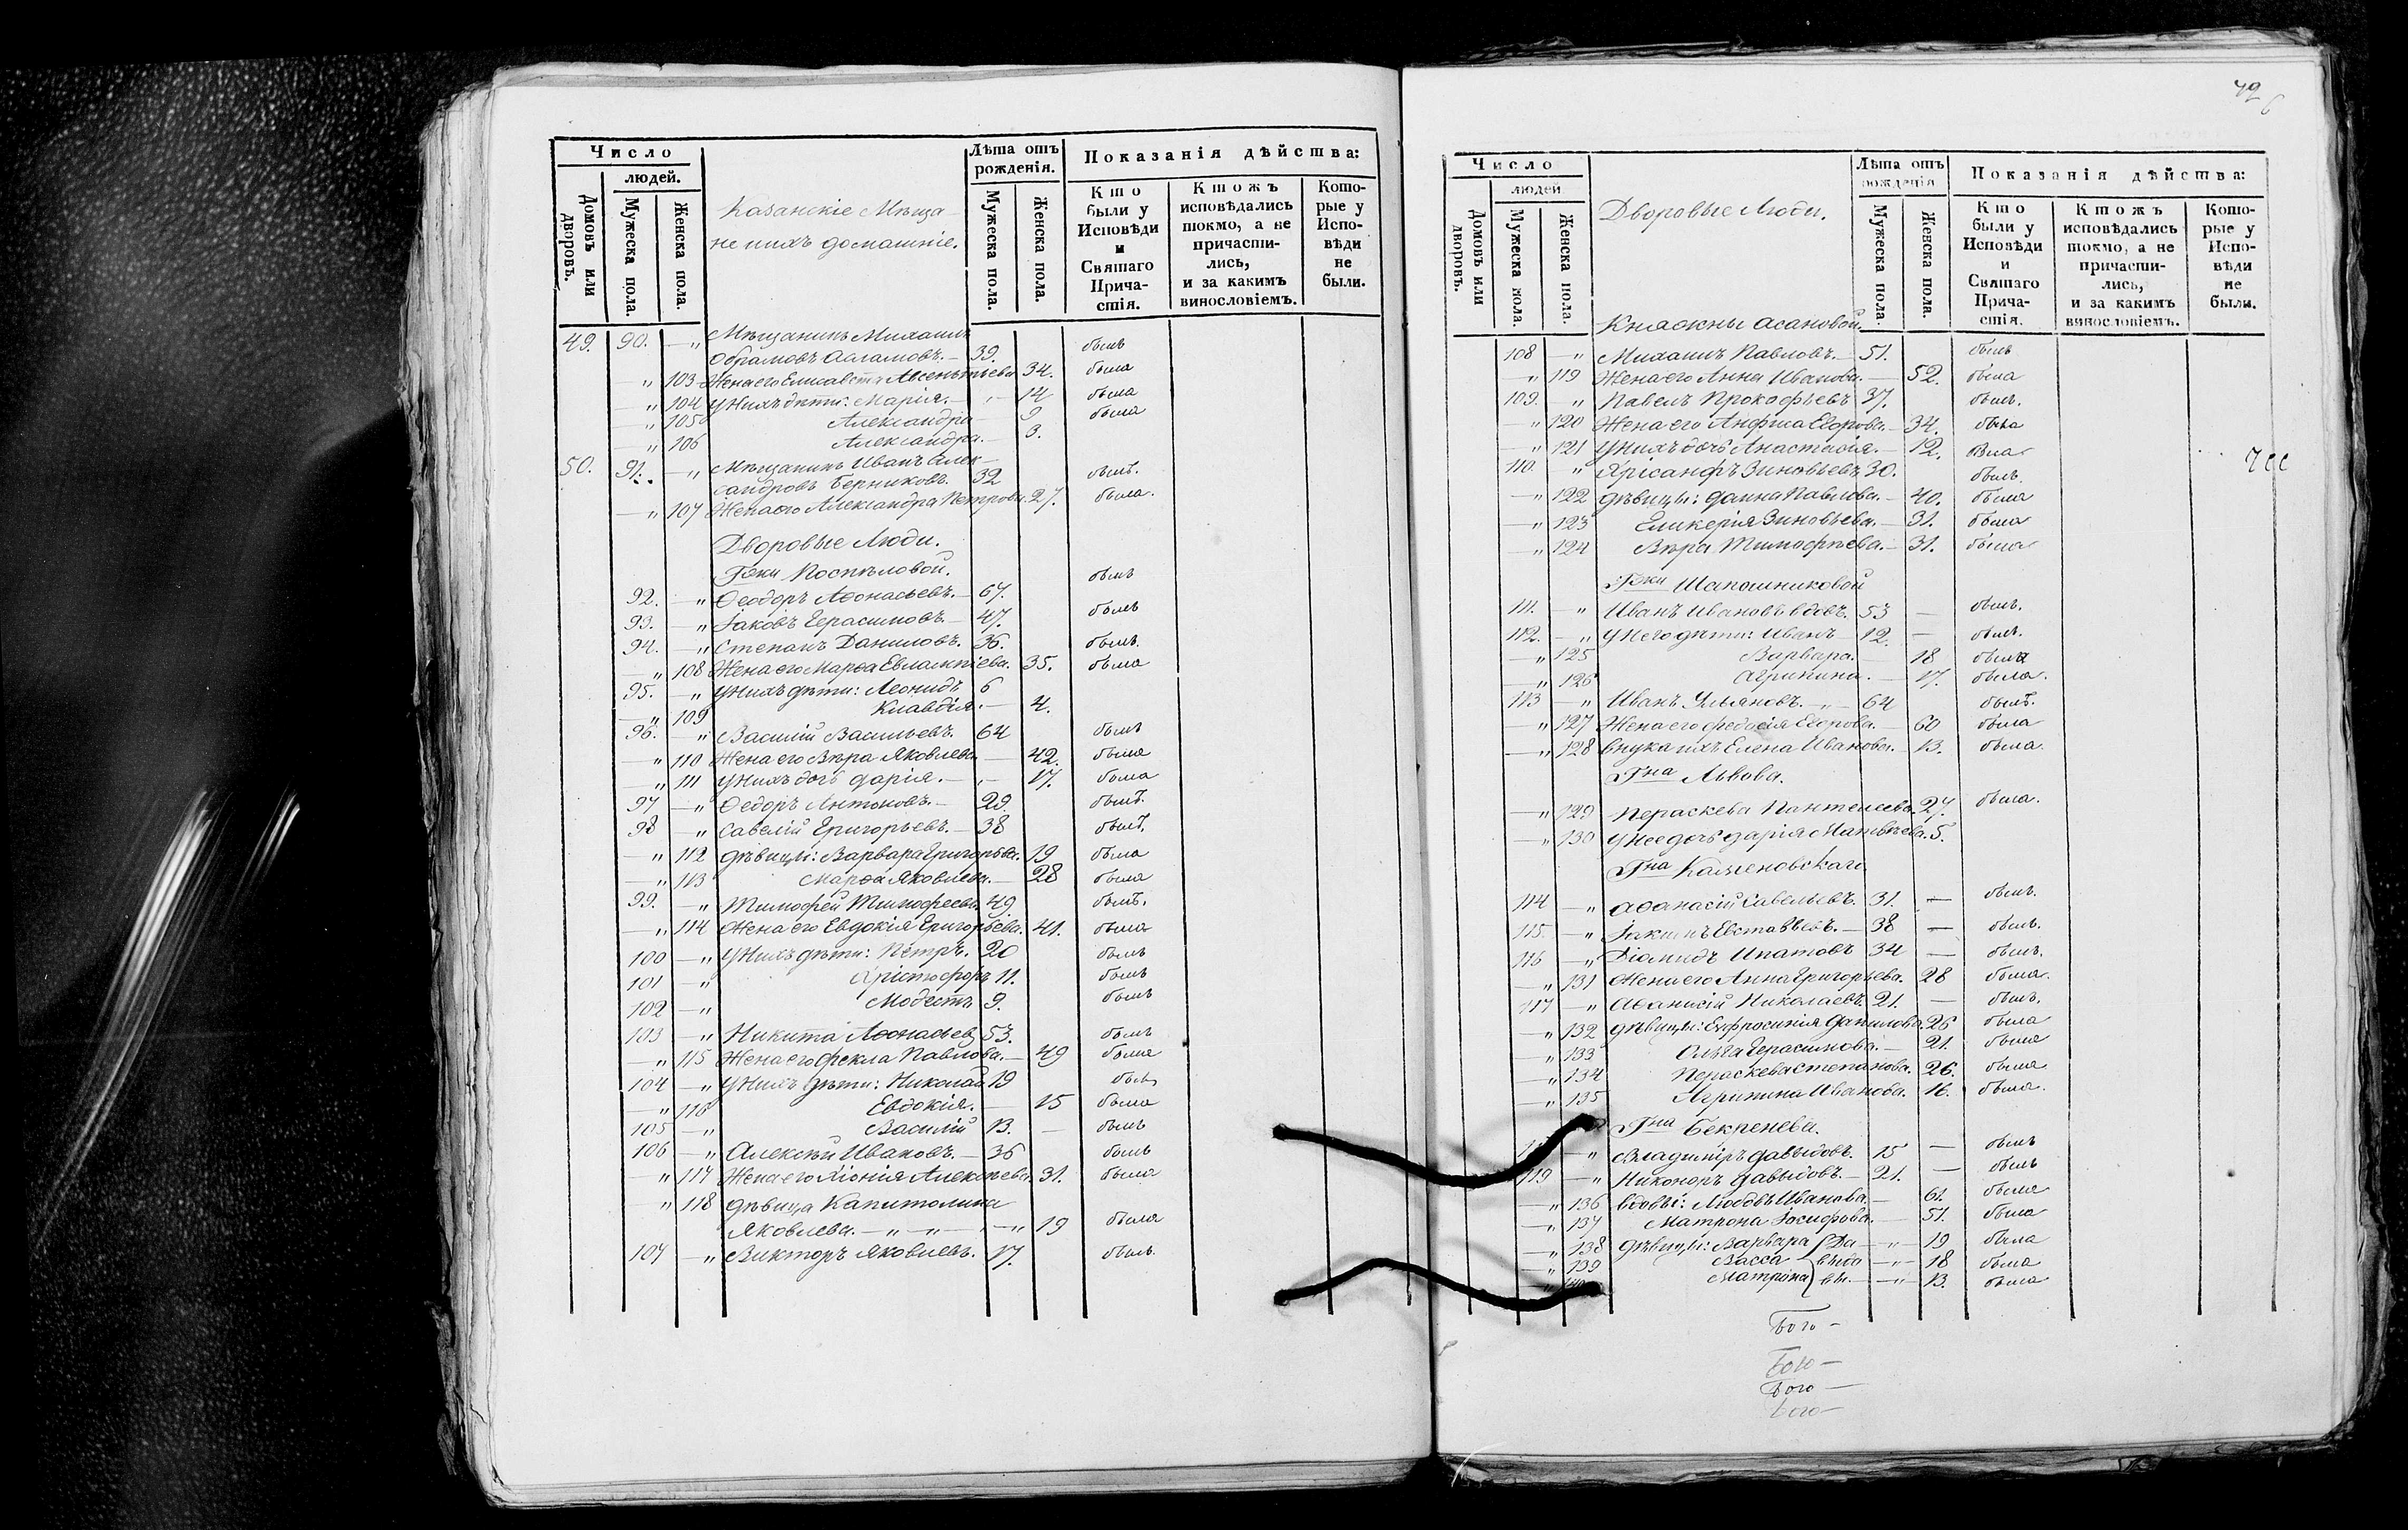 Число
людей.
Домовъ или дворовъ.
Мужеска пола.
Женска пола.
Казанскіе Мѣща-
не и ихъ домашніе.
Лѣта отъ рожденія.
Мужеска пола.
Женска пола.
Показанія дѣйства:
Кто были у Исповѣди и Святаго Прича-стія.
Ктожъ исповѣдались токмо, а не причасти-лись, и за какимъ винословіемъ.
Кото-рые у Испо-вѣди не были.
49. 90. —" Мѣщанинъ Михаилъ
Абрамовъ Асламовъ.— 39. былъ
—" 103 Жена его Елисавета Авсентьева 34. была
—" 104 у нихъ дѣти: Марія.— 14 была
—" 105 Александра 9 была
—" 106 Александра.— 3.
50. 91. —" Мѣщанинъ Иванъ Алек-
сандровъ Берниковъ. 32 былъ.
—" 107 Жена его Александра Петрова. 27. была.
Дворовые Люди.
Гжи Поспѣловой.
92. —" Ѳеодоръ Аѳонасьевъ.— 67. былъ
93. —" Іаковъ Герасимовъ.— 47. былъ
94. —" Степанъ Даниловъ. 36. былъ.
—" 108 Жена его Марѳа Евлампіева. 35. была
95. —" у нихъ дѣти: Леонидъ 6
—" 109 Клавдія.— 4.
96. —" Василій Васильевъ. 64 былъ
—" 110 Жена его Вѣра Яковлева.— 42. была
—" 111 у нихъ дочь Дарія.— 17. была
97 —" Ѳедоръ Антоновъ.— 29. былъ.
98 —" Савелій Григорьевъ.— 38 былъ.
—" 112 дѣвицы: Варвара Григорьева. 19 была
—" 113 Марѳа Яковлева.— 28 была
99. —" Тимофей Тимофеевъ. 49. былъ.
—" 114 Жена его Евдокія Григорьева. 41. была
100 —" у нихъ дѣти: Петръ. 20 былъ
101 —" Христофоръ 11. былъ
102 —" Модестъ 9. былъ
103 —" Никита Аѳонасьевъ 53. былъ
—" 115 Жена его Фекла Павлова.— 49 была
104 —" у нихъ дѣти: Николай 19 былъ
—" 116 Евдокія.— 15 была
105 —" Василій 13. — былъ
106 —" Алексѣй Ивановъ.— 36 былъ
—" 117 Жена его Хіонія Алексѣева. 31. была
—" 118 дѣвица Капитолина
Яковлева.—"—"—"—" 19 была
107 —" Викторъ Яковлевъ. 17. былъ
49
6
Число
людей
Домовъ или дворовъ.
Мужеска пола.
Женска пола.
Дворовые Люди.
Лѣта отъ рожденія
Мужеска пола.
Женска пола.
Показанія дѣйства:
Кто были у Исповѣди и Святаго Прича-стія.
Ктожъ исповѣдались токмо, а не причасти-лись, и за какимъ винословіемъ.
Кото-рые у Испо-вѣди не были.
Княжны Асановой.
108 —" Михаилъ Павловъ.— 51. былъ
—" 119 Жена его Анна Иванова.— 52. была
109. —" Павелъ Прокофьевъ 37. былъ.
—" 120 Жена его Анфиса Егорова.— 34. была
—" 121 у нихъ дочь Анастасія.— 12.
110. —" Хрисанфъ Зиновьевъ 30. былъ.
—" 122 дѣвицы: Павлова.— 40. была
—" 123 Гликерія Зиновьева.— 31. была
—" 124 Вѣра Тимофѣева.— 31. была
Гжи Шапошниковой
111. —" Иванъ Ивановъ вдовъ. 53 — былъ.
112. —" у него дѣти: Иванъ 12. — былъ.
—" 125 Варвара.— 18 была
—" 126 Агрипина.— 17. была.
113 —" Иванъ Ульяновъ.—"— 64 былъ.
—" 127 Жена его Федосія Егорова.— 60 была
—" 128 внука ихъ Елена Иванова.— 13. была.
Гна Львова.
—" 129 Пераскева Пантелеева. 27. была.
—" 130 у нее дочь Дарія Матвѣева. 5.
Гна Каменовскаго.
114 —" Аѳанасій Савельевъ. 31. — былъ.
115. —" Іакимъ Евставьевъ.— 38 — былъ.
116 —" Діамидъ Ипатовъ 34 — былъ.
—" 131 Жена его Анна Григорьева. 28 была.
117 —" Аѳанасій Николаевъ. 21. — былъ.
—" 132 дѣвицы: Ефросинія Данилова. 26 была
—" 133 Ольга Герасимова.— 21. была
—" 134 Пераскева Степанова. 26. была
—" 135 Агрипина Иванова. 16. была.
Гна Бекренева.
—" Владимiръ Давыдовъ. 15 — былъ
119 —" Никоноръ Давыдовъ.— 21. — былъ
—" 136 вдовы: Любовь Иванова.— 61. была
—" 137 Матрона Іосифова.— 51. была
—" 138 дѣвицы: Варвара } Да —"— 19 была
—" 139 Васса } выдо —"— 18 была
Матрона } вы.—"— 13. была
Бого—
Бого—
Бого—
Бого—